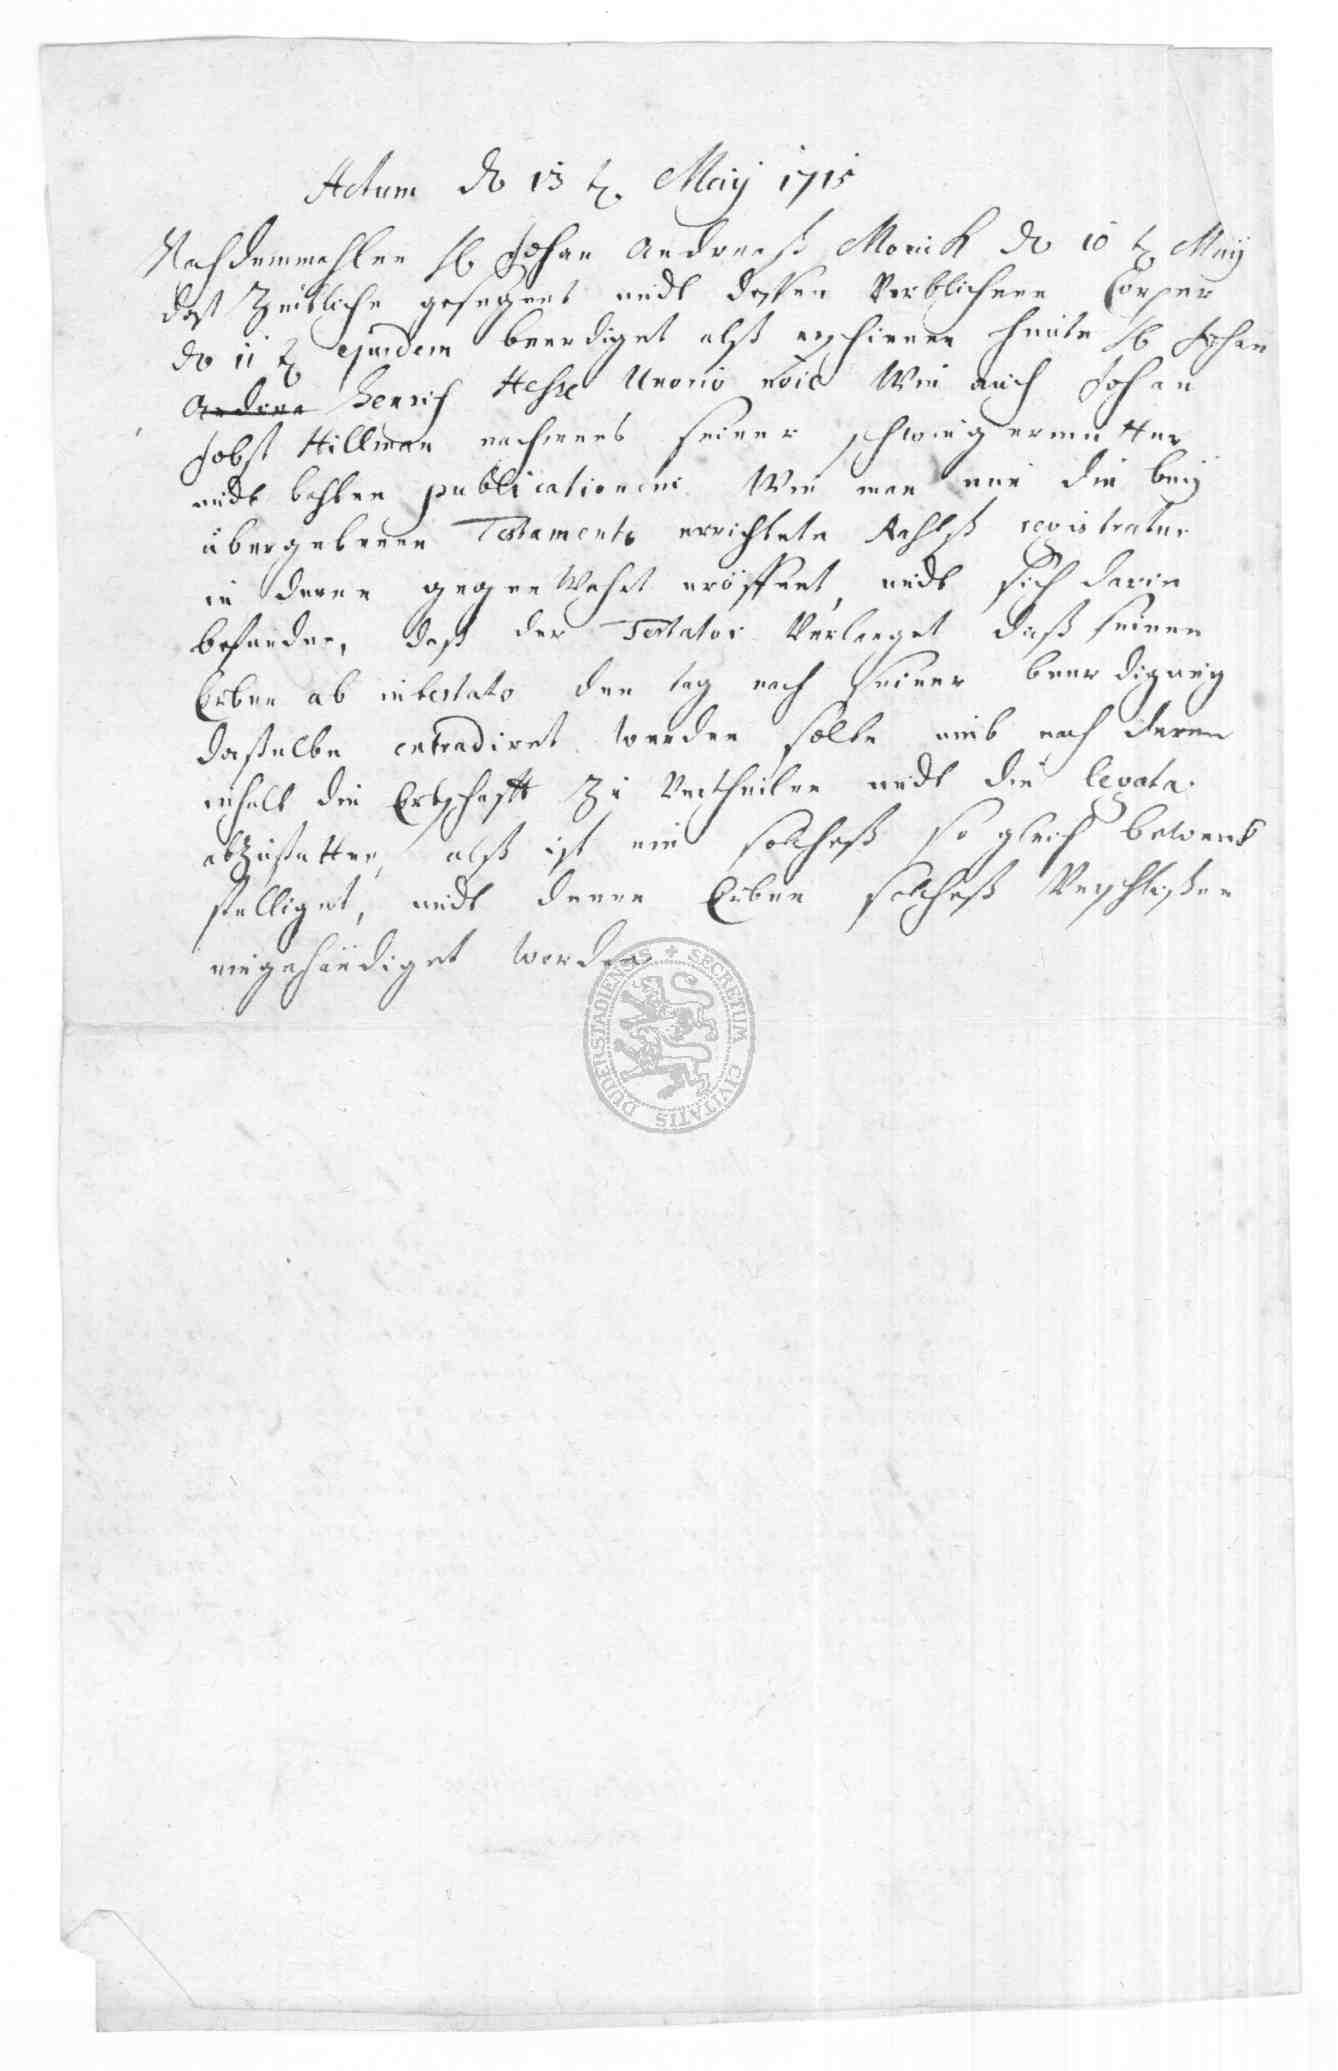 Actum d 13 t. Maij 1715
Nachdemmahlen H Johan Andreaß Monick d 10 t Maij
daß Zeitliche gesegnet undt deßen Verblichene Cörper
d 11 t ejusdem beerdiget alß erschienen heute H Johan
Henrich Hesse Wie auch Johan
Jobst Hillman nahmens seiner schwiegermutter
undt bahten publicationem. Wie man nun die beÿ
übergebenen Testaments errichtete Rahtß registratur
in deren gegenWahrt eröffnet, undt sich darin
befunden, daß der Testator Verlanget daß seinen
Erben ab intestato den tag nach seiner beerdigung
daßelbe extradiret werden solte umb nach deren
inhalt die Erbschafft zu Vertheilen undt die legata
abzustatten, alß ist ein solcheß so gleich bewerck
stelliget, undt denen Erben solcheß Verschloßen
eingehändiget worden
SECRETUM CIVITATIS DUDERSTADIENSIS